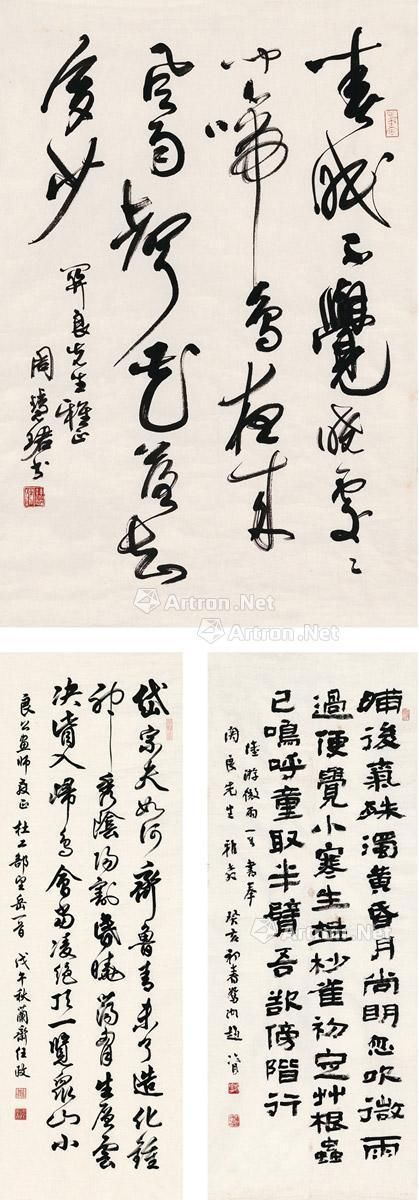 春眠不覺曉處〻
聞啼鳥夜來
風雨聲花落知
多少
關良先生雅正
周慧珺書
晡後氣殊濁黃昏月尚明忽吹微雨
過便覺小寒生樹杪雀初定艸根蟲
已鳴呼童取半臂吾欲傍階行
陸游微雨一首書奉
關良先生雅教 癸亥初春鶯湖趙冷月
岱宗夫如何齊魯青未了造化鍾
神秀陰陽割昏曉蕩胸生層雲
決眥入歸鳥會當凌絕頂一覽眾山小
良公畫師教正 杜工部望岳一首 戊午秋蘭齋任政
Artron.Net
Artron.Net